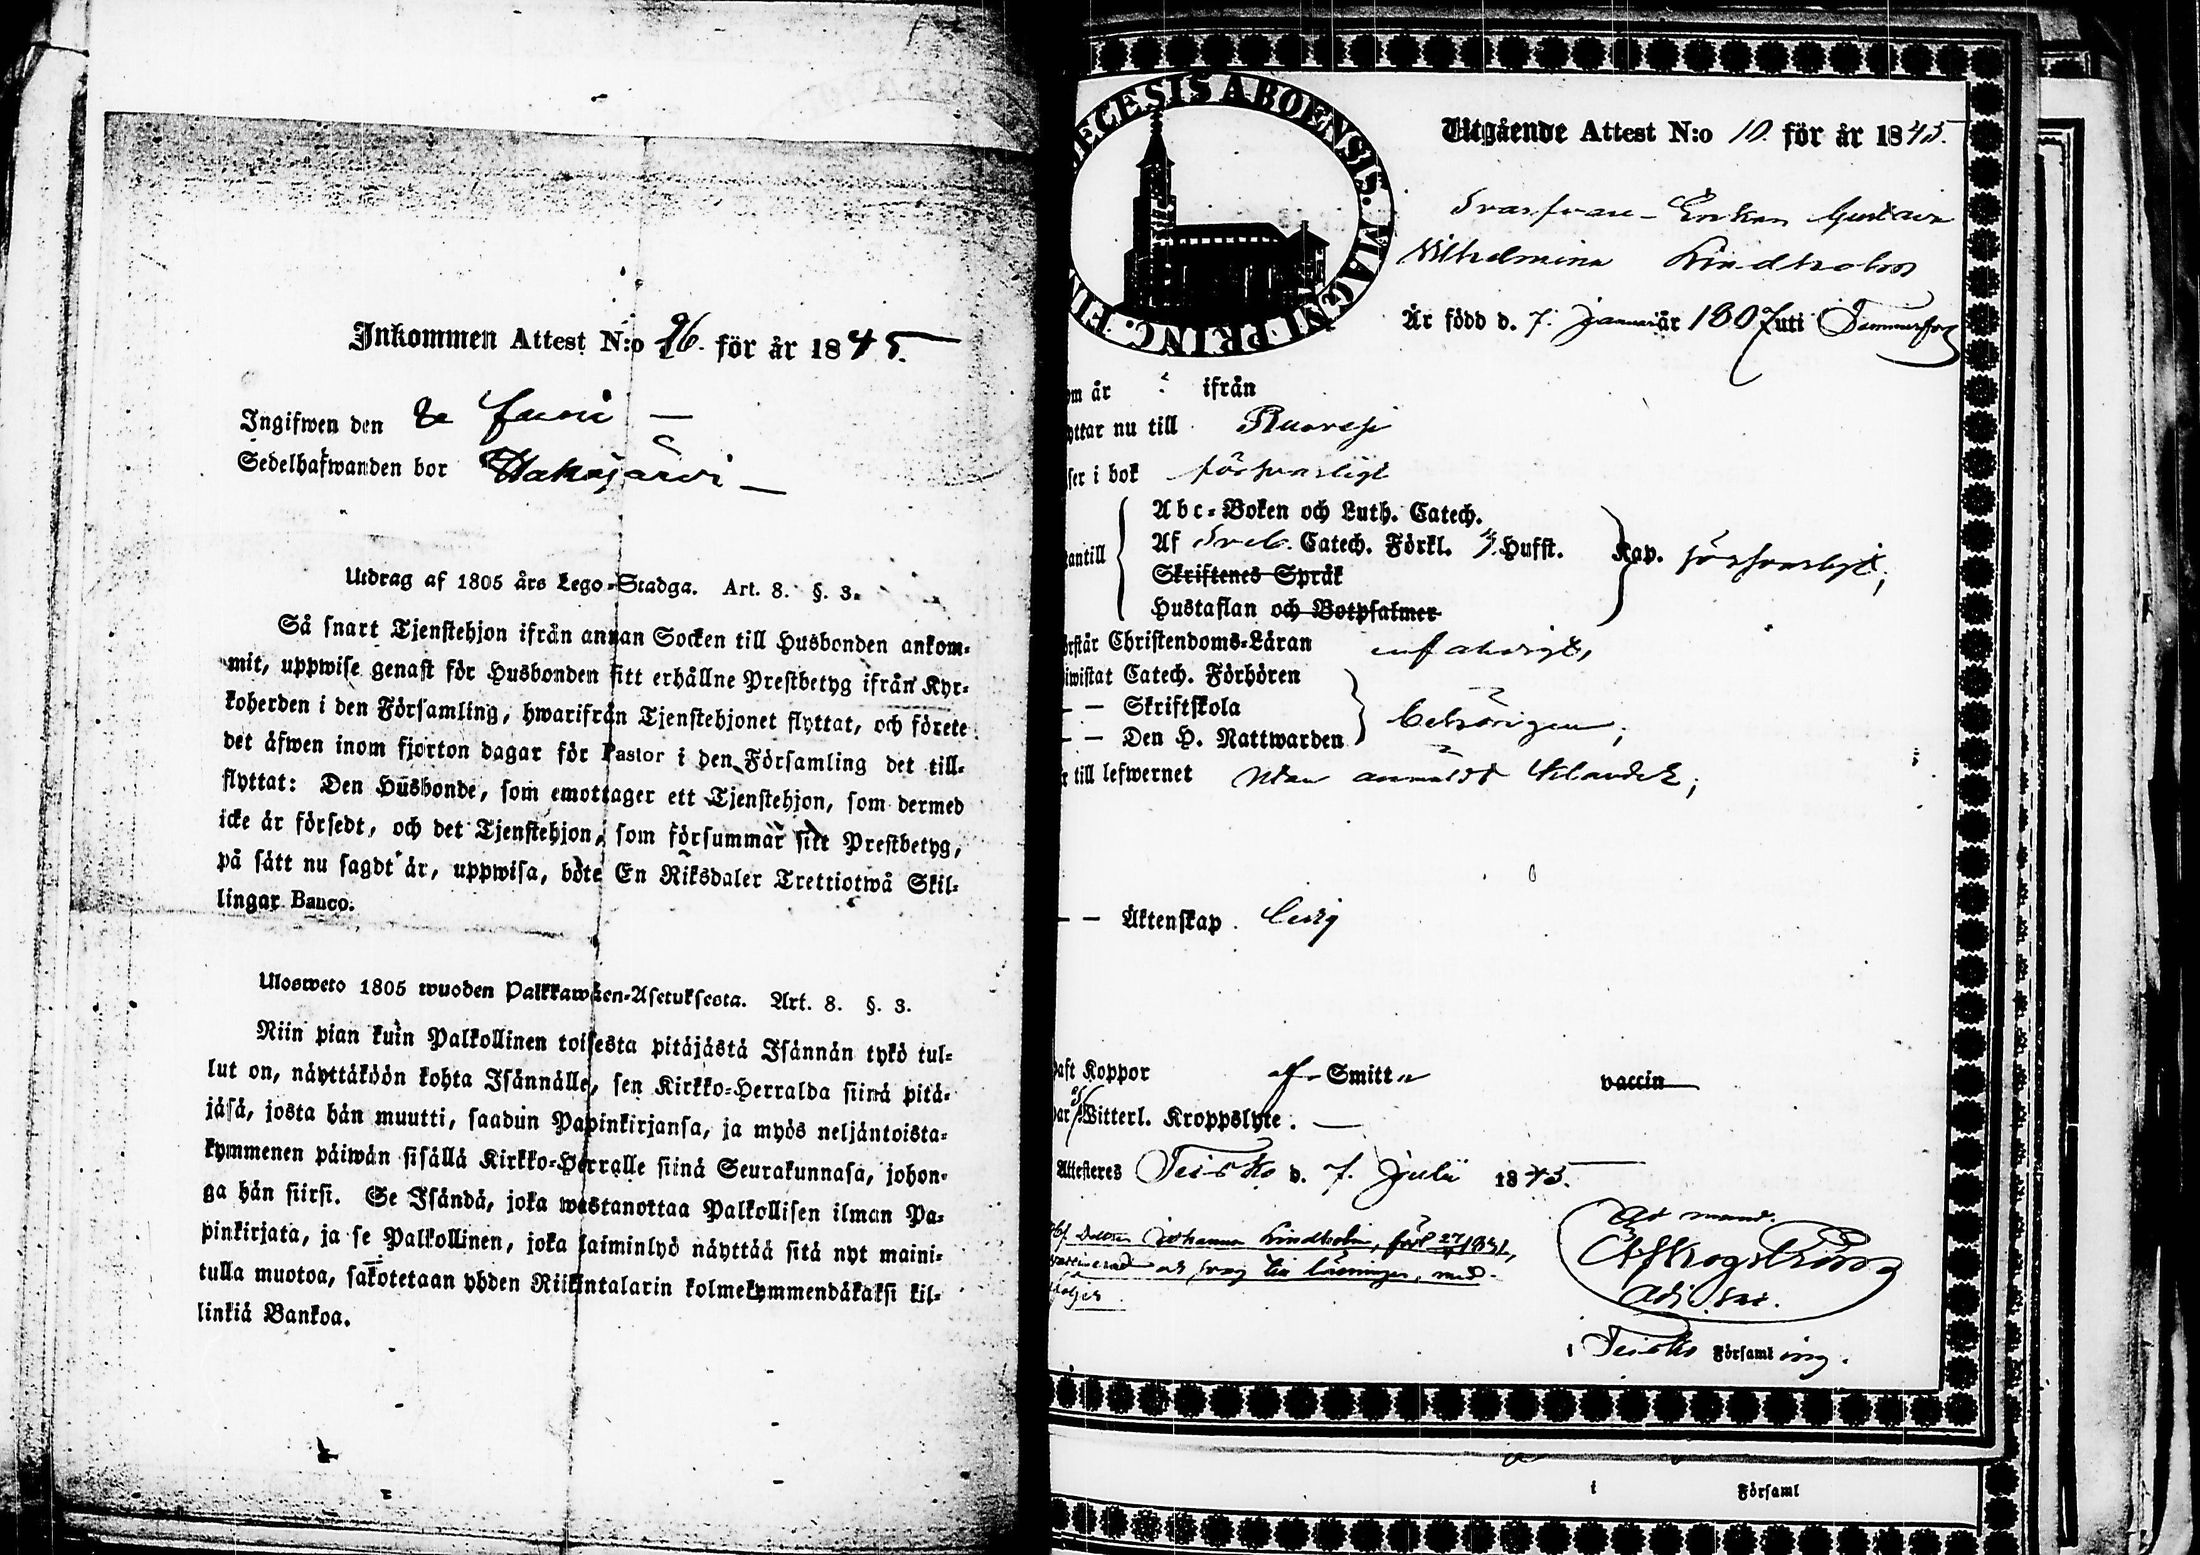 Inkommen Attest N:o 96. för år 1845.
Ingifwen den
Sedelhafwanden bor
Utdrag af 1805 års Lego-Stadga. Art. 8. §. 3.
Så snart Tjenstehjon ifrån annan Socken till Husbonden ankom-
mit, uppwise genast för Husbonden sitt erhållne Prestbetyg ifrån Kyr-
koherden i den Församling, hwarifrån Tjenstehjonet flyttat, och förete
det äfwen inom fjorton dagar för Pastor i den Församling det till-
flyttat: Den Husbonde, som emottager ett Tjenstehjon, som dermed
icke är försedt, och det Tjenstehjon, som försummar sitt Prestbetyg,
på sätt nu sagdt är, uppwisa, böte En Riksdaler Trettiotwå Skil-
lingar Banco.
Ulosweto 1805 wuoden Palkkawäen-Asetuksesta. Art. 8. §. 3.
Niin pian kuin Palkollinen toisesta pitäjästä Isännän tykö tul-
lut on, näyttäköön kohta Isännälle, sen Kirkko-Herralda siinä pitä-
jäsä, josta hän muutti, saadun Papinkirjansa, ja myös neljäntoista-
kymmenen päiwän sisällä Kirkko-Herralle siinä Seurakunnasa, johon-
ga hän siirsi. Se Isändä, joka wastanottaa Palkollisen ilman Pa-
pinkirjata, ja se Palkollinen, joka laiminlyö näyttää sitä nyt maini-
tulla muotoa, sakotetaan yhden Riikintalarin kolmekymmendäkaksi kil-
linkiä Bankoa.
ECESIS ABOENSIS. MAGNI PRINC. FIN
Utgående Attest N:o 10. för år 1845.
Enkan Gustava
Wilhelmina Lindholm
Är född d. 7. Januari år 1807 uti Tammerfors
om är ifrån
yttar nu till Ruovesi
ser i bok försvarligt
antill
Abc-Boken och Luth. Catech.
Af Sveb. Catech. Förkl. Hufst. Kap. försvarligt,
Skriftenes Språk
Hustaflan och Botpsalmer
örstår Christendoms-Läran enfaldigt,
iwistat Catech. Förhören
– – Skriftskola behörigen,
– – Den H. Nattwarden
r till lefwernet utan anmäldt klander,
– – Äktenskap ledig
haft Koppor af Smitta vaccin
har Witterl. Kroppslyte. —
Attesteres Teisko d. 7. Julii 1845.
Dottren Johanna Lindholm, född 27
vaccinerad och svag till läsningen, med-
följer
Ad mand.
Adj. Sac.
i Teisko Församling.
i Församl